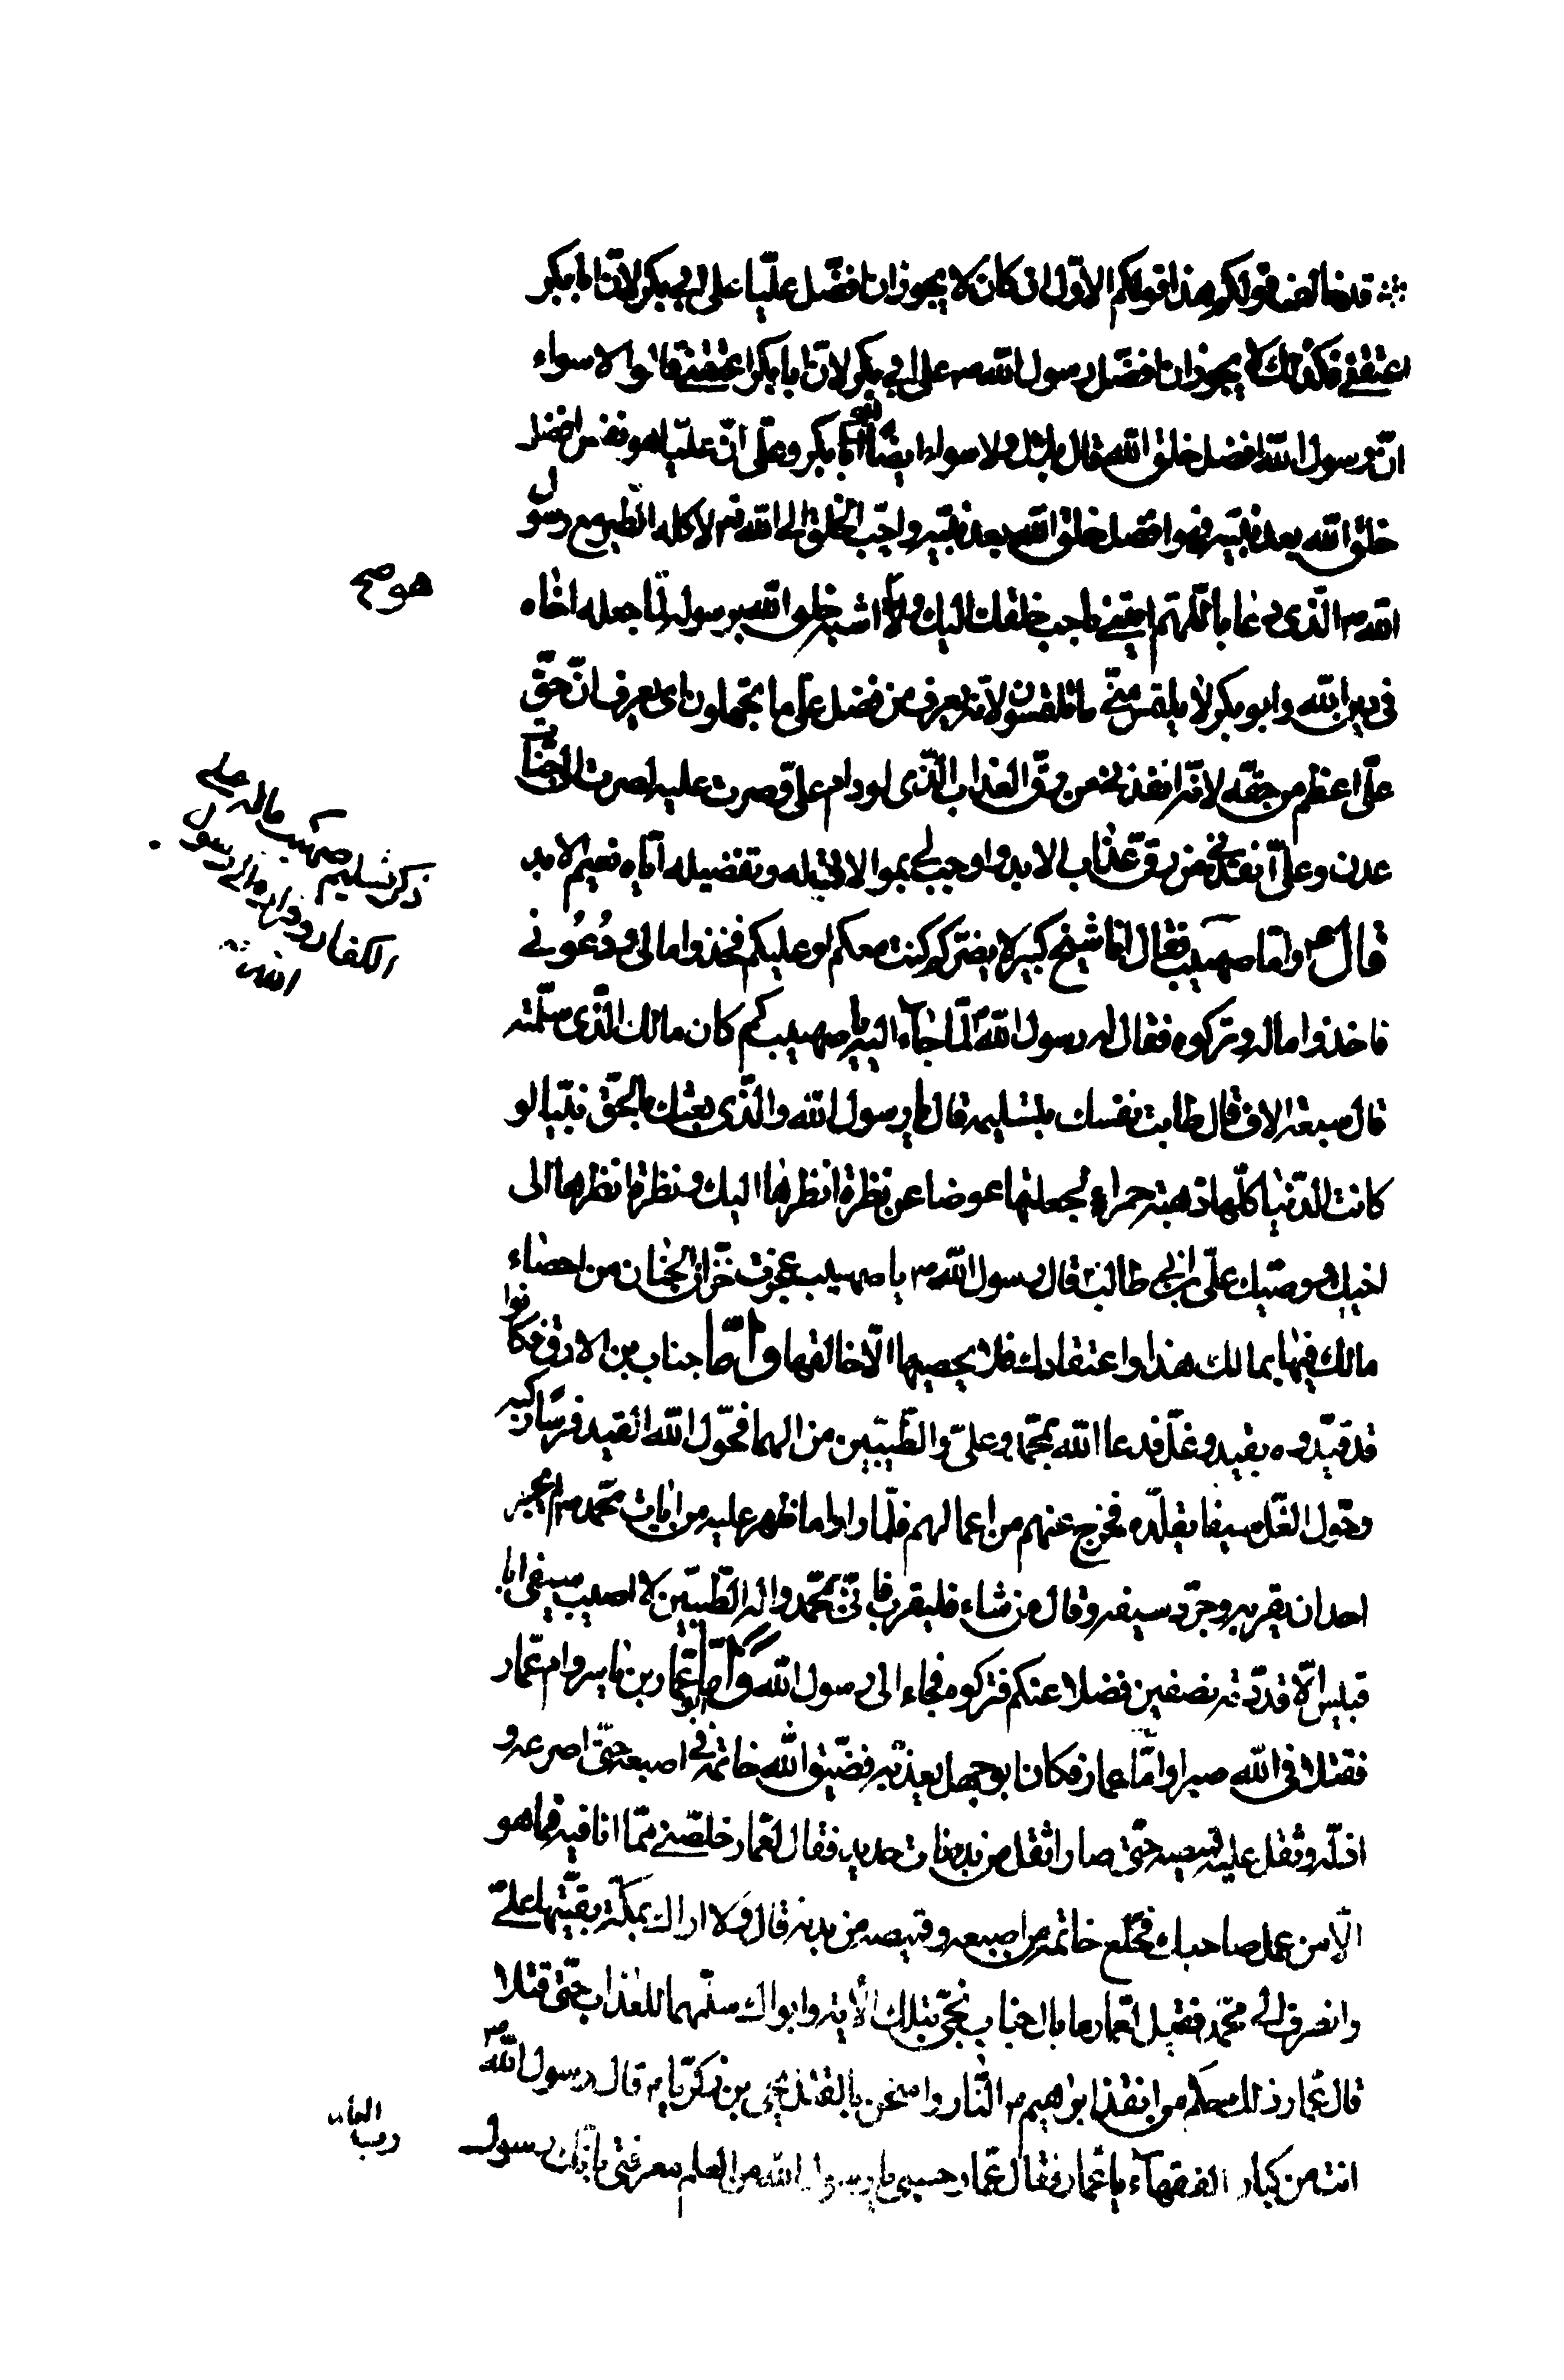 قد خالف قولكم هذا قولكم الاول ان كان لا يجوز ان افضّل عليّا على ابي بكر لانّ ابا بكر
اعتقني فكذلك لا يجوز ان افضّل رسول الله ص على ابي بكر لانّ ابا بكر اعتقني قالوا لا سواء
انّ رسول الله افضل خلق الله قال بلال ولا سواء ايضا ابو بكر وعلي انّ عليّا هو نفس افضل
خلق الله بعد نبيّه فهو افضل خلق الله بعد نبيّه واحبّ الخلق الى الله تع لاكله الطير مع رسول
الله ص الّذي دعا باللّهم ايتني باحب خلقك اليك وهو اشبه خلق الله برسوله لمّا جعله اخاه
هو صح
في دين الله وابو بكر لا يلتمس منّي ما تلتمسون لانّه يعرف من فضل علي ما تجهلون اي يعرف انّ حقّ
عليّ اعظم من حقّه لانّه انقذني من رقّ العذاب الّذي لو دام عليّ وصبرت عليه لصرت الى جنّات
عدن وعليّ انقذني من رقّ عذاب الابد واوجب لي بموالاتي له وتفضيلي له ايّاه نعيم الابد
ذكر تسليم صهيب ماله على
الكفار وفراره الى رسول
الله
قال ص وامّا صهيب فقال انا شيخ كبير لا يضرّكم كنت معكم او عليكم فخذوا مالي ودعوني
فاخذوا ماله وتركوه فقال له رسول الله ص لمّا جاء اليه يا صهيب كم كان مالك الّذي سلّمته
قال سبعة الاف قال طابت نفسك بتسليمه قال يا رسول الله والّذي بعثك بالحقّ نبيّا لو
كانت الدّنيا كلّها ذهبة حمراء لجعلتها عوضا عن نظرة انظرها اليك ونظرة انظرها الى
اخيك ووصيّك عليّ بن ابي طالب قال رسول الله ص يا صهيب عجزت خزّان الجنان من احصاء
مالك فيها بمالك هذا واعتقادك فلا يحصيها الّا خالقها وامّا جناب بن الارت فكانوا
قد قيّدوه بقيد وغلّ فدعا الله بمحمّد وعليّ والطّيبين من الهما فحوّل الله القيد فرسا ركبه
وحوّل الغلّ سيفا يقلّده فخرج عنهم من اعمالهم فلمّا راوا ما ظهر عليه من ايات محمّد ص لم يجسر
احد ان يقربه وجرّد سيفه وقال من شاء فليقرب فانّي بمحمّد واله الطّيبين لا اصيب بسيفي ابا
قبيس الّا قددته نصفين فضلا عنكم فتركوه فجاء الى رسول الله وامّا عمّار بن ياسر وام عمّار
فقتلا في الله صبرا وامّا عمار فكان ابو جهل يعذّبه فضيّق الله خاتمه في اصبعه حتّى اصرعه و
اذلّه وثقل عليه قميصه حتّى صار اثقل من بدنات حديد فقال لعمّار خلّصني ممّا انا فيه فما هو
الّا من عمل صاحبك فخلع خاتمه من اصبعه وقميصه من بدنه قال ولا اراك بمكّة بقيتها علي
وانصرف الى محمّد فقيل لعمار ما بال خباب نجّي بتلك الاية وابواك سلّمهما للعذاب حتّى قتلا
قال عمّار ذلك حكم من انقذ ابراهيم من النّار وامتحن بالقتل يحيى بن زكريّا ع قال رسول الله ص
انت من كبار الفقهاء يا عمّار فقال عمّار حسبي يا رسول الله من العلم معرفتي بانّك رسول
رب العا